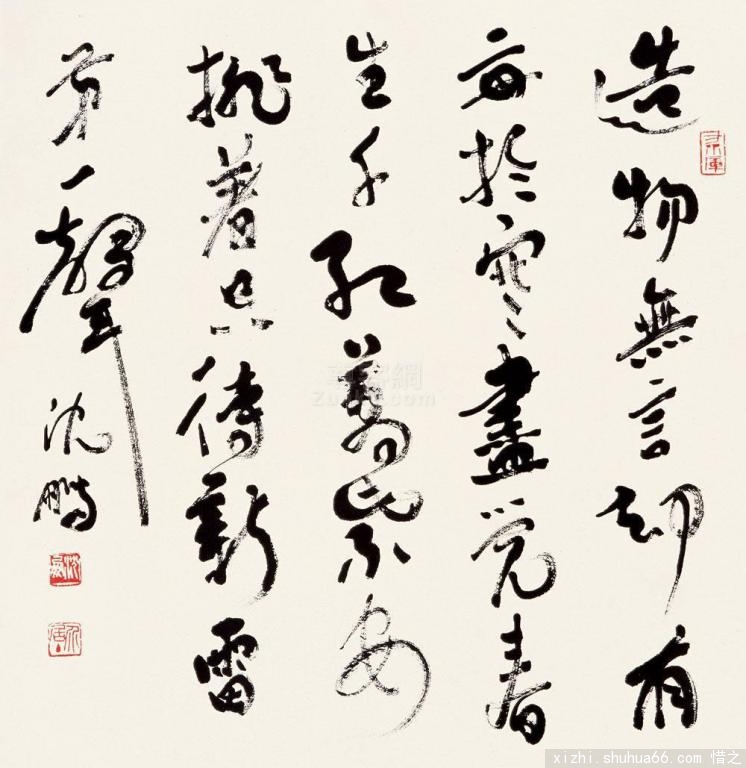 造物無言却有
每於寒盡覺春
生千紅萬紫安
排著只待新雷
第一聲
沈鵬
xizhi.shuhua66.com 惜之